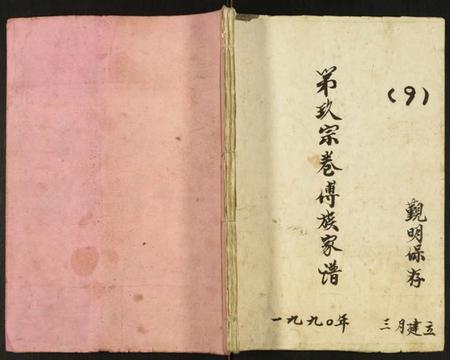 (9)
第玖宗卷傅族家谱
觀明保存
一九九〇年 三月建立